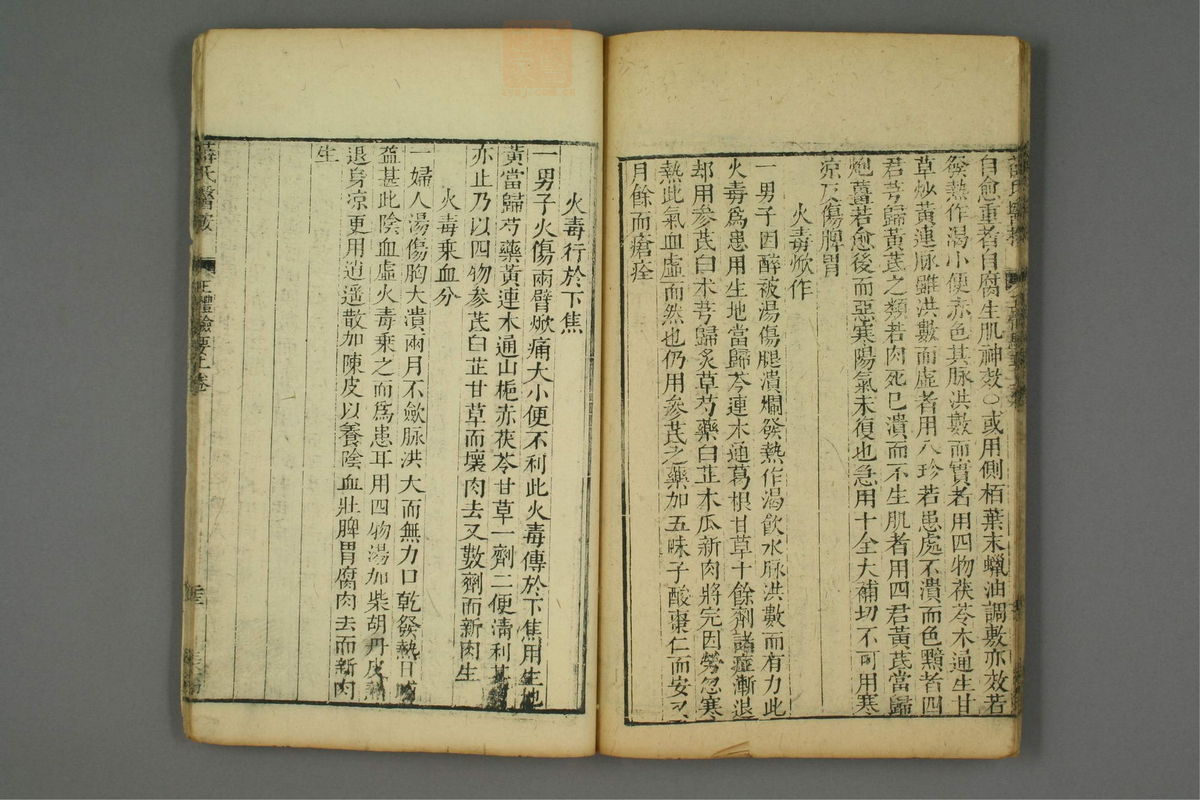 自愈重者自腐生肌神效○或用側栢葉末蠟油調敷亦效若
發熱作渴小便赤色其脉洪數而實者用四物茯苓木通生甘
草炒黃連脉雖洪數而虛者用八珍若患處不潰而色黯者四
君芎歸黃芪之類若肉死已潰而不生肌者用四君黃芪當歸
炮薑若愈後而惡寒陽氣未復也急用十全大補切不可用寒
凉反傷脾胃
火毒焮作
一男子因醉被湯傷腿潰爛發熱作渴飲水脉洪數而有力此
火毒爲患用生地當歸芩連木通葛根甘草十餘劑諸症漸退
却用參芪白木芎歸炙草芍藥白芷木瓜新肉將完因勞忽寒
熱此氣血虛而然也仍用參芪之藥加五味子酸棗仁而安又
月餘而瘡痊
火毒行於下焦
一男子火傷兩臂焮痛大小便不利此火毒傳於下焦用生地
黃當歸芍藥黃連木通山梔赤茯苓甘草一劑二便清利其
亦止乃以四物參芪白芷甘草而壞肉去又數劑而新肉生
火毒乘血分
一婦人湯傷胸大潰兩月不斂脉洪大而無力口乾發熱日晡
益甚此陰血虛火毒乘之而爲患耳用四物湯加柴胡丹皮
退身凉更用逍遥散加陳皮以養陰血壯脾胃腐肉去而新肉
生
薛氏醫按 正體類要上卷